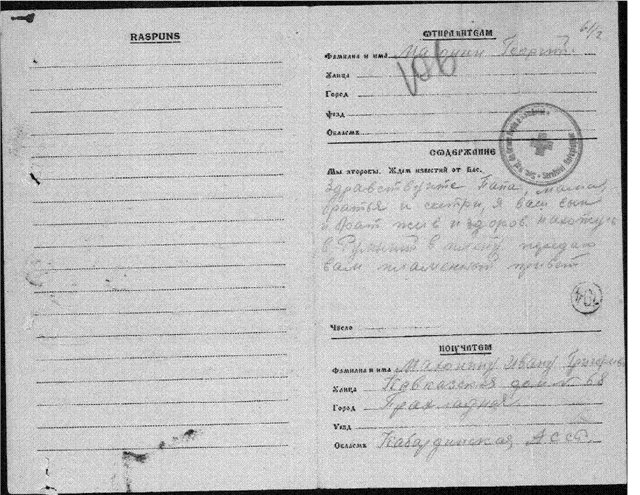 RASPUNS
ОТПРАВИТЕЛМ
61/2
Фамилиа и има Малюнин Георгий.
Улица
Город
Уезд
Областъ
СОДЕРЖАНИЕ
Мы здоровы. Ждем известий от Вас.
Здравствуйте Папа, мама,
братья и сестри, я ваш сын
и брат жив и здоров. нахожусь
в Румынии в плену передаю
вам пламенный привет
704
Число
ПОЛУЧАТЕЛМ
Фамилиа и има Малюнину Ивану
Улица Кавказская дом № 68
Город Прохладная.
Уезд
Областъ Кабардинская АССР.